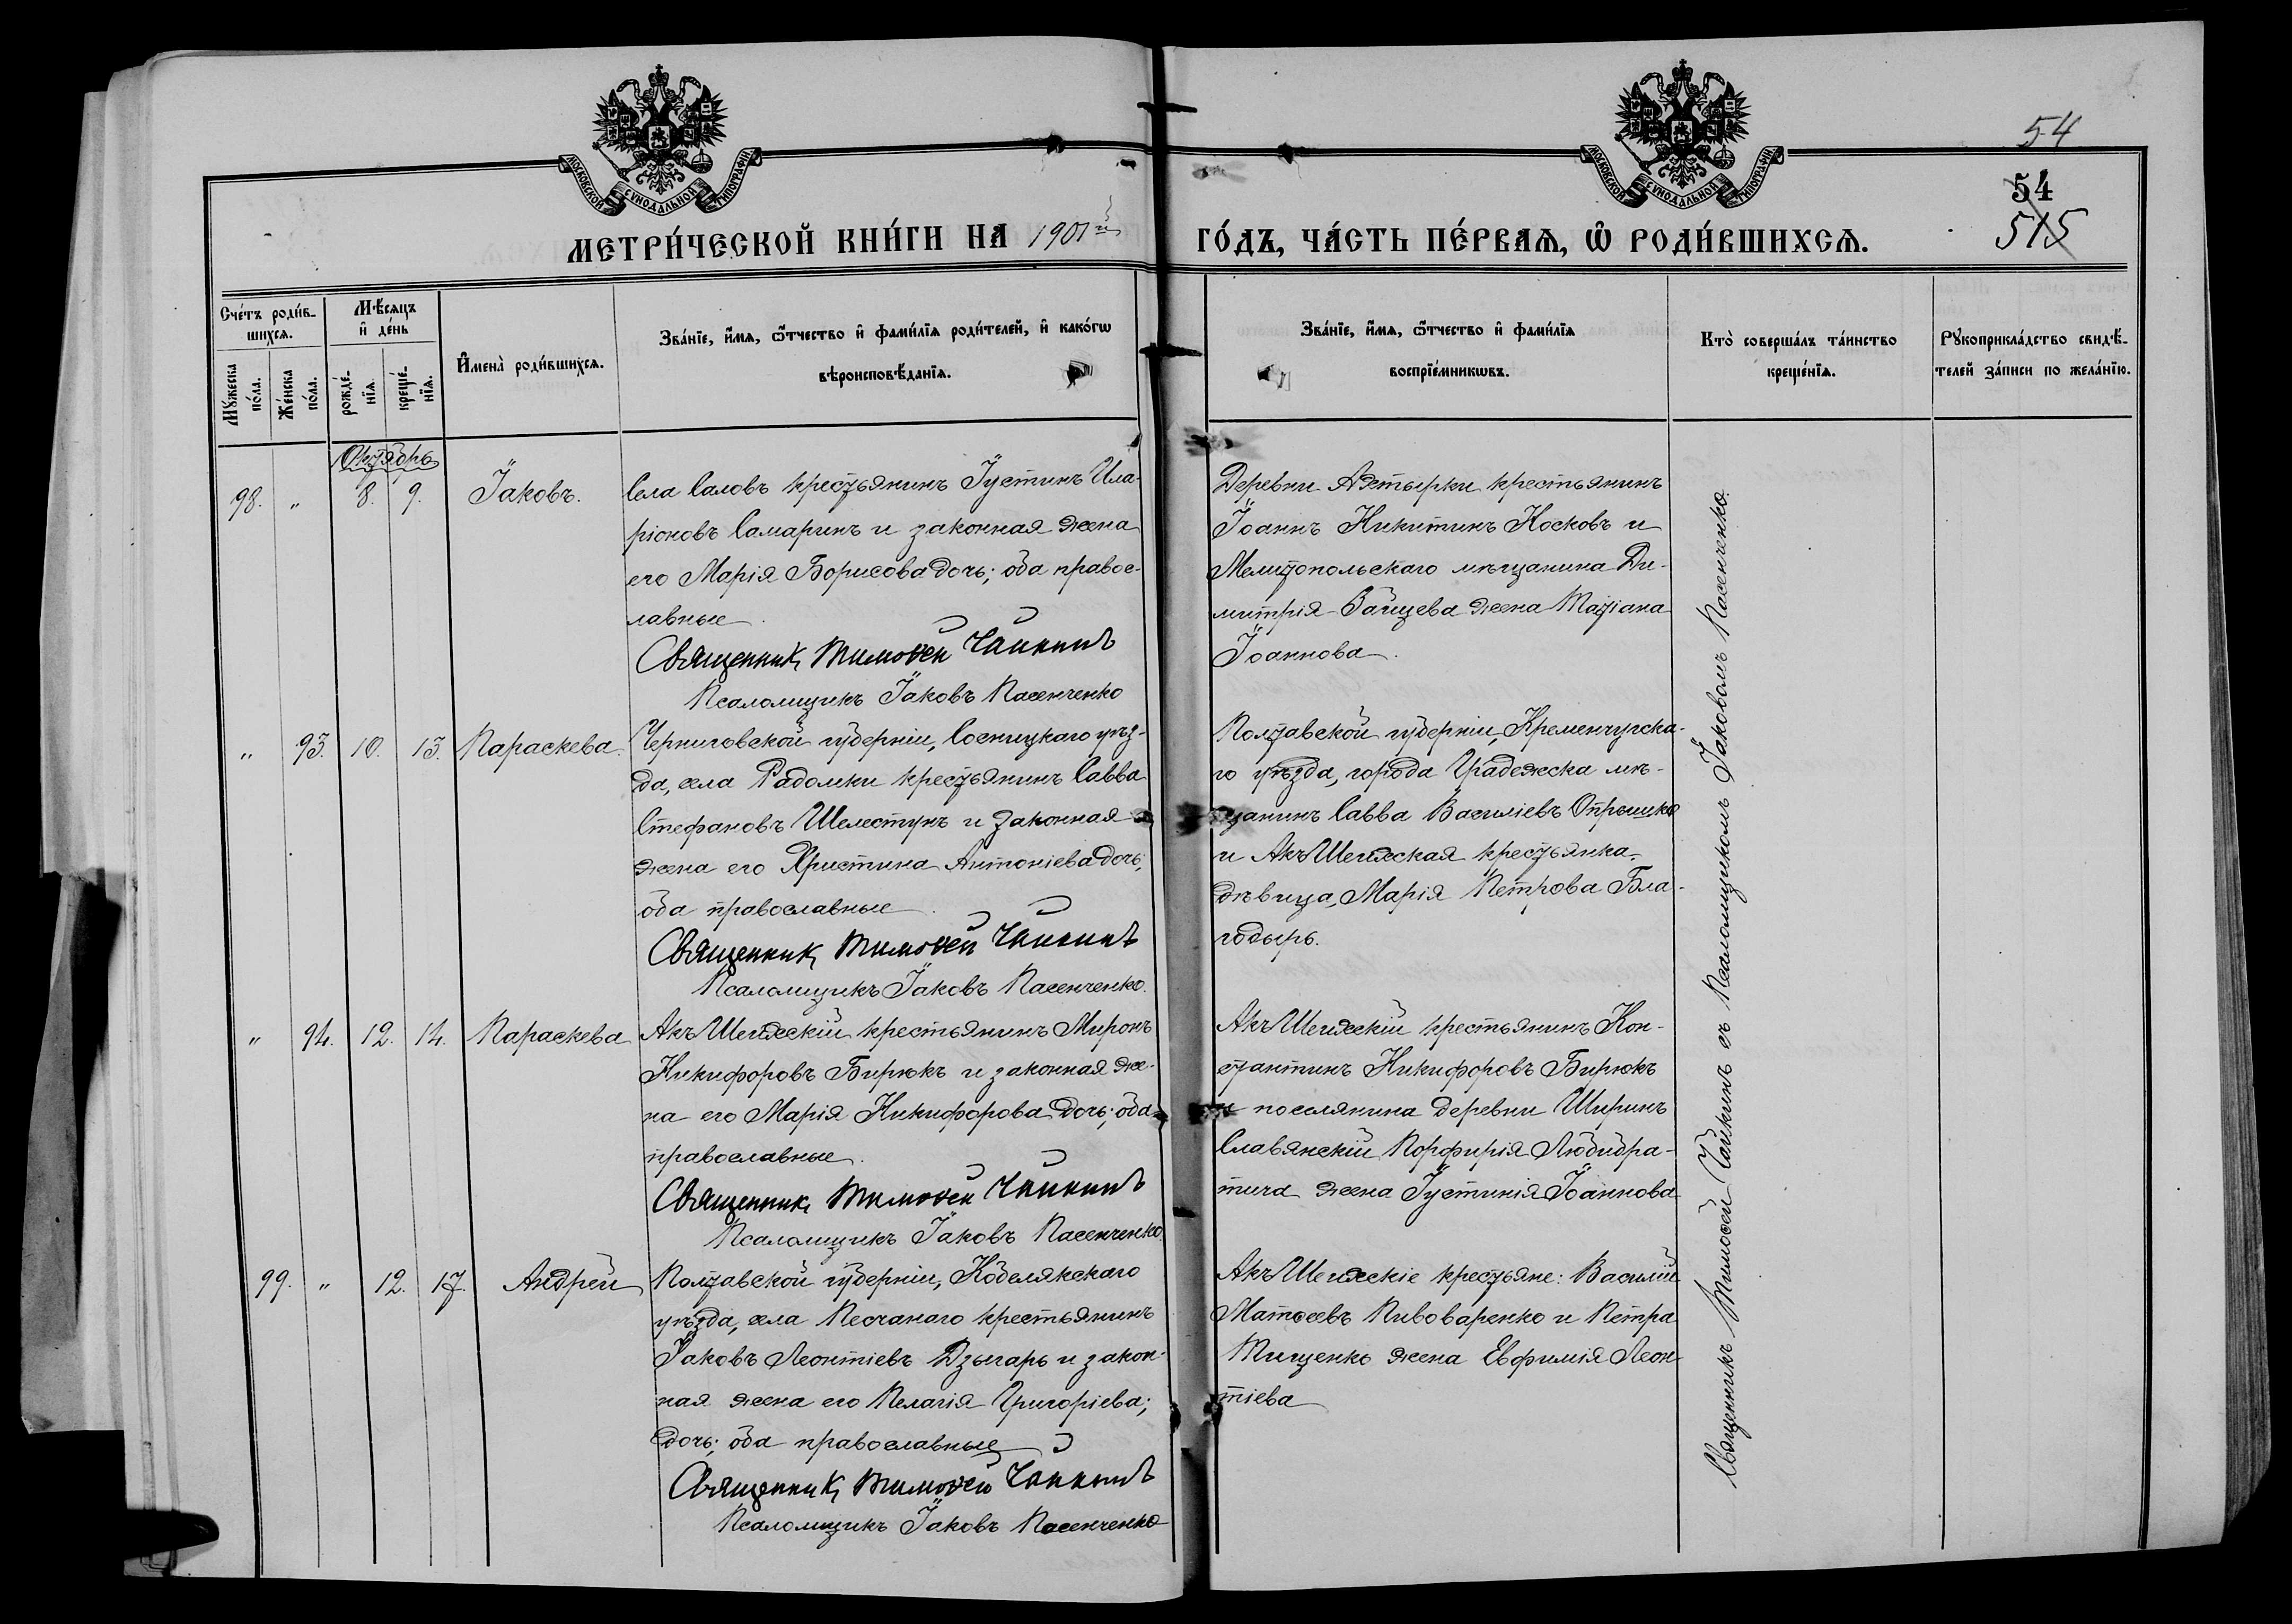 54
МОСКОВСКОЙ СѴНОДАЛЬНОЙ ТИПОГРАФІИ
МОСКОВСКОЙ СѴНОДАЛЬНОЙ ТИПОГРАФІИ
54
515
МЕТРИ́ЧЕСКОЙ КНИ́ГИ НА 1901й ГО́ДЪ, ЧА́СТЬ ПЕ́РВАѦ, Ѡ РОДИ́ВШИХСѦ.
Сче́тъ роди́в-
шихсѧ.
Мꙋ́жеска
по́ла.
Же́нска
по́ла.
Мѣ́сѧцъ
и҆ де́нь
рожде́-
нїѧ.
креще́-
нїѧ.
И҆мена̀ роди́вшихсѧ.
Зва́нїе, и҆́мѧ, ѻ҆́тчество и҆ фами́лїѧ роди́телей, и҆ како́гѡ
вѣроисповѣ́данїѧ.
Зва́нїе, и҆́мѧ, ѻ҆́тчество и҆ фами́лїѧ
воспрїе́мникѡвъ.
Кто̀ соверша́лъ та́инство
креще́нїѧ.
Рꙋкоприкла́дство свидѣ́-
телей за́писи по жела́нїю.
Октябрь
98. " 8. 9. Іаковъ.
Села Саловъ крестьянинъ Іустинъ Ила-
ріоновъ Самаринъ и законная жена
его Марія Борисова дочь; оба правос-
лавные.
Священникъ Тимоѳей Чайкинъ
Псаломщикъ Іаковъ Пасенченко
Деревни Ахтырки крестьянинъ
Іоаннъ Никитинъ Носковъ и
Мелитопольскаго мѣщанина Ди-
митрія Зайцева жена Татіана
Іоаннова.
" 93. 10. 13. Параскева.
Черниговской губерніи, Сосницкаго уѣз-
да, села Радомки крестьянинъ Савва
Стефановъ Шелестунъ и законная
жена его Христина Антоніева дочь;
оба православные.
Священникъ Тимоѳей Чайкинъ
Псаломщикъ Іаковъ Пасенченко.
Полтавской губерніи, Кременчугска-
го уѣзда, города Градежска мѣ-
щанинъ Савва Василіевъ Опрышко
и АкъШеихская крестьянка-
дѣвица, Марія Петрова Бла-
годырь.
" 94. 12. 14. Параскева
АкъШеихскій крестьянинъ Миронъ
Никифоровъ Бирюкъ и законная же-
на его Марія Никифорова дочь; оба
православные.
Священникъ Тимоѳей Чайкинъ
Псаломщикъ Іаковъ Пасенченко.
АкъШеихскій крестьянинъ Кон-
стантинъ Никифоровъ Бирюкъ
и поселянина деревни Ширинъ
Славянскій Порфирія Любибра-
тича жена Іустинія Іоаннова
99. " 12. 17. Андрей
Полтавской губерніи, Кобелякскаго
уѣзда, села Песчанаго крестьянинъ
Іаковъ Леонтіевъ Дзыгарь и закон-
ная жена его Пелагія Григоріева;
дочь; оба православные
Священникъ Тимоѳей Чайкинъ
Псаломщикъ Іаковъ Пасенченко
АкъШеихскіе крестьяне: Василій
Матѳеевъ Пивоваренко и Петра
Тищенко жена Евфимія Леон-
тіева
Священникъ Тимоѳей Чайкинъ съ Псаломщикомъ Іаковомъ Пасенченко.